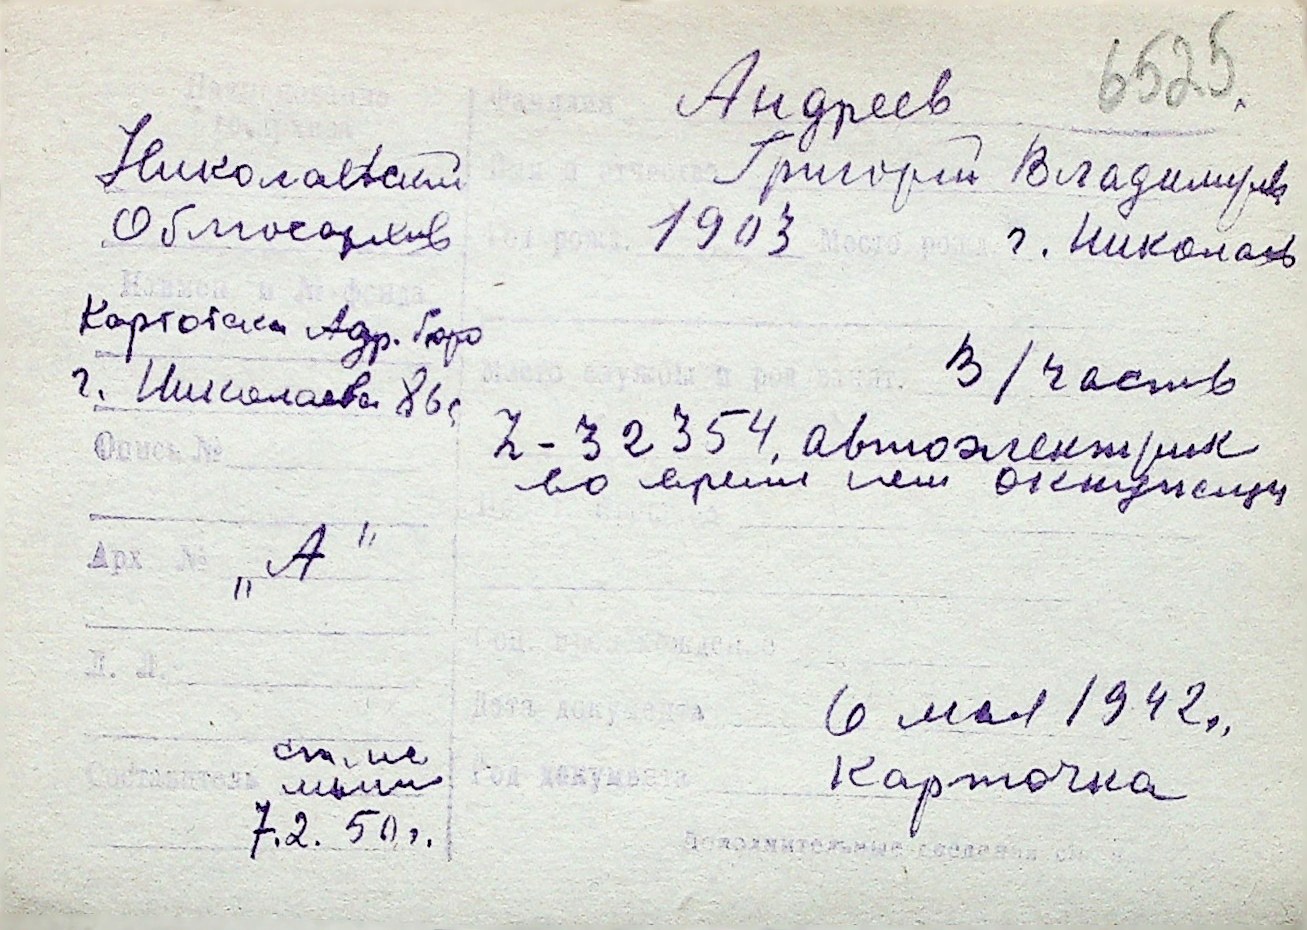 6525.
Наименование
госархива
Николаевский
Облгосархив
Наимен. и № фонда
Картотека Адр. бюро
г. Николаева
Опись №
Арх. №
„А"
Л. Л.
Составитель
7.2.50г.
Фамилия Андреев
Имя и отчество Григорий Владимиров
Год рожд. 1903 Место рожд. г. Николаев
Место службы и род занят. В/часть
Z-32354, автоэлектрик
во время нем оккупации
Год
Дата документа 6 мая 1942г.
Род документа Карточка
Дополнительные сведения